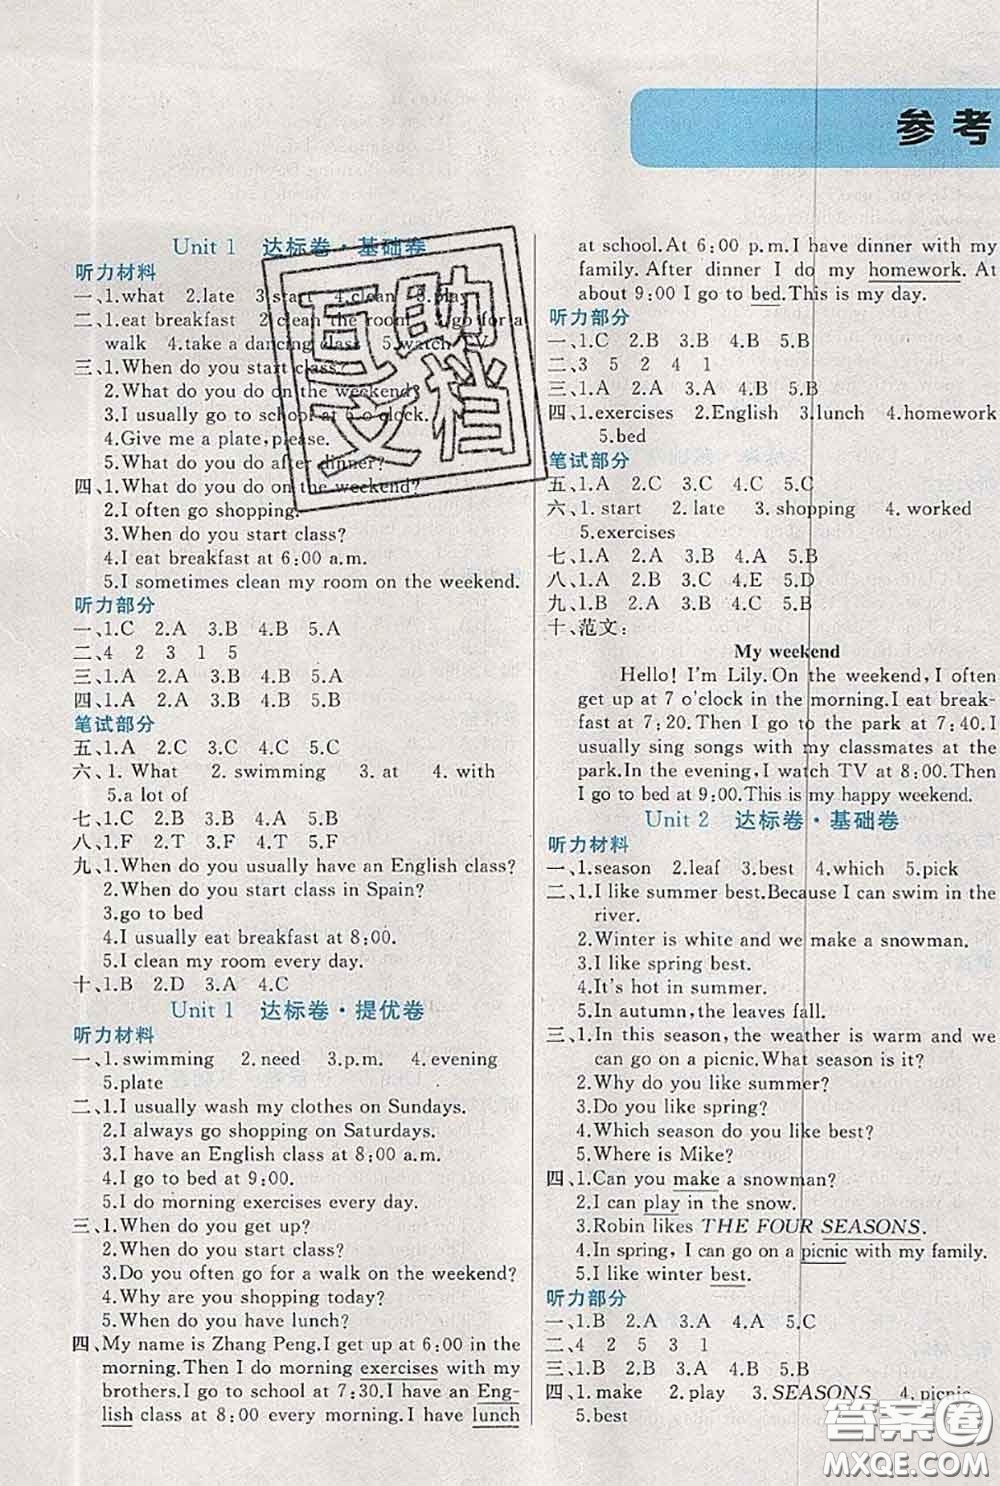 参考
Unit 1 达标卷·基础卷
听力材料
一、1.what 2.late 3.start 4.clean 5.play
二、1.eat breakfast 2.clean the room 3.go for a
walk 4.take a dancing class 5.watch TV
三、1.When do you start class?
2.What do you do on the weekend?
3.I usually go to school at 8 o'clock.
4.Give me a plate,please.
5.What do you do after dinner?
四、1.What do you do on the weekend?
2.I often go shopping.
3.When do you start class?
4.I eat breakfast at 6:00 a.m.
5.I sometimes clean my room on the weekend.
听力部分
一、1.C 2.A 3.B 4.B 5.A
二、4 2 3 1 5
三、1.A 2.A 3.B 4.B 5.A
四、1.A 2.A 3.B 4.B 5.B
笔试部分
五、1.A 2.C 3.C 4.B 5.A
六、1. What 2. swimming 3. at 4. with
5.a lot of
七、1.C 2.B 3.B 4.A 5.B
八、1.F 2.T 3.F 4.T 5.F
九、1.When do you usually have an English class?
2.When do you start class in Spain?
3.go to bed
4.I usually eat breakfast at 8:00.
5.I clean my room every day.
十、1.B 2.D 3.A 4.C
Unit 1 达标卷·提优卷
听力材料
一、1.swimming 2.need 3.p.m. 4.evening
5.plate
二、1.I usually wash my clothes on Sundays.
2.I always go shopping on Saturdays.
3.I have an English class at 9:00.
4.I go to bed at 9:00.
5.I do morning exercises every day.
三、1.When do you get up?
2.When do you start class?
3.Do you often go for a walk on the weekend?
4.Why are you shopping today?
5.When do you have lunch?
四、My name is Zhang Peng.I get up at 6:00 in the
morning.Then I do morning exercises with my
brothers.I go to school at 7:30.I have an Eng-
lish class at 8:00 every morning.I have lunch
at school.At 6:00 p.m.I have dinner with my
family. After dinner I do my homework. At
about 9:00 I go to bed.This is my day.
听力部分
一、1.C 2.B 3.B 4.B 5.B
二、3 5 2 4 1
三、1.A 2.A 3.A 4.B 5.B
四、1.exercises 2.English 3.lunch 4.homework
5.bed
笔试部分
五、1.A 2.C 3.B 4.C 5.C
六、1. start 2. late 3. shopping 4. worked
5.exercises
七、1.A 2.A 3.B 4.A 5.B
八、1.A 2.B 3.C 4.E 5.D
九、1.B 2.A 3.B 4.A 5.B
十、范文:
My weekend
Hello! I'm Lily.On the weekend,I often
get up at 7 o'clock in the morning.I eat break-
fast at 7:20.Then I go to the park at 7:40.I
usually sing songs with my classmates at the
park.In the evening,I watch TV at 8:00.Then
I go to bed at 9:00.This is my happy weekend.
Unit 2 达标卷·基础卷
听力材料
一、1.season 2.leaf 3.best 4.which 5.pick
二、1.I like summer best.Because I can swim in the
river.
2.Winter is white and we make a snowman.
3.I like spring best.
4.It's hot in summer.
5.In autumn,the leaves fall.
三、1.In this season, the weather is warm and we
can go on a picnic.What season is it?
2.Why do you like summer?
3.Do you like spring?
4.Which season do you like best?
5.Where is Mike?
四、1.Can you make a snowman?
2.I can play in the snow.
3.Robin likes THE FOUR SEASONS.
4.In spring, I can go on a picnic with my family.
5.I like winter best.
听力部分
一、1.B 2.A 3.A 4.A 5.C
二、4 2 5 3 1
三、1.B 2.A 3.B 4.B 5.B
四、1. make 2. play 3. SEASONS 4. picnic
5.best
互助文档
答案圈
MXQE.COM